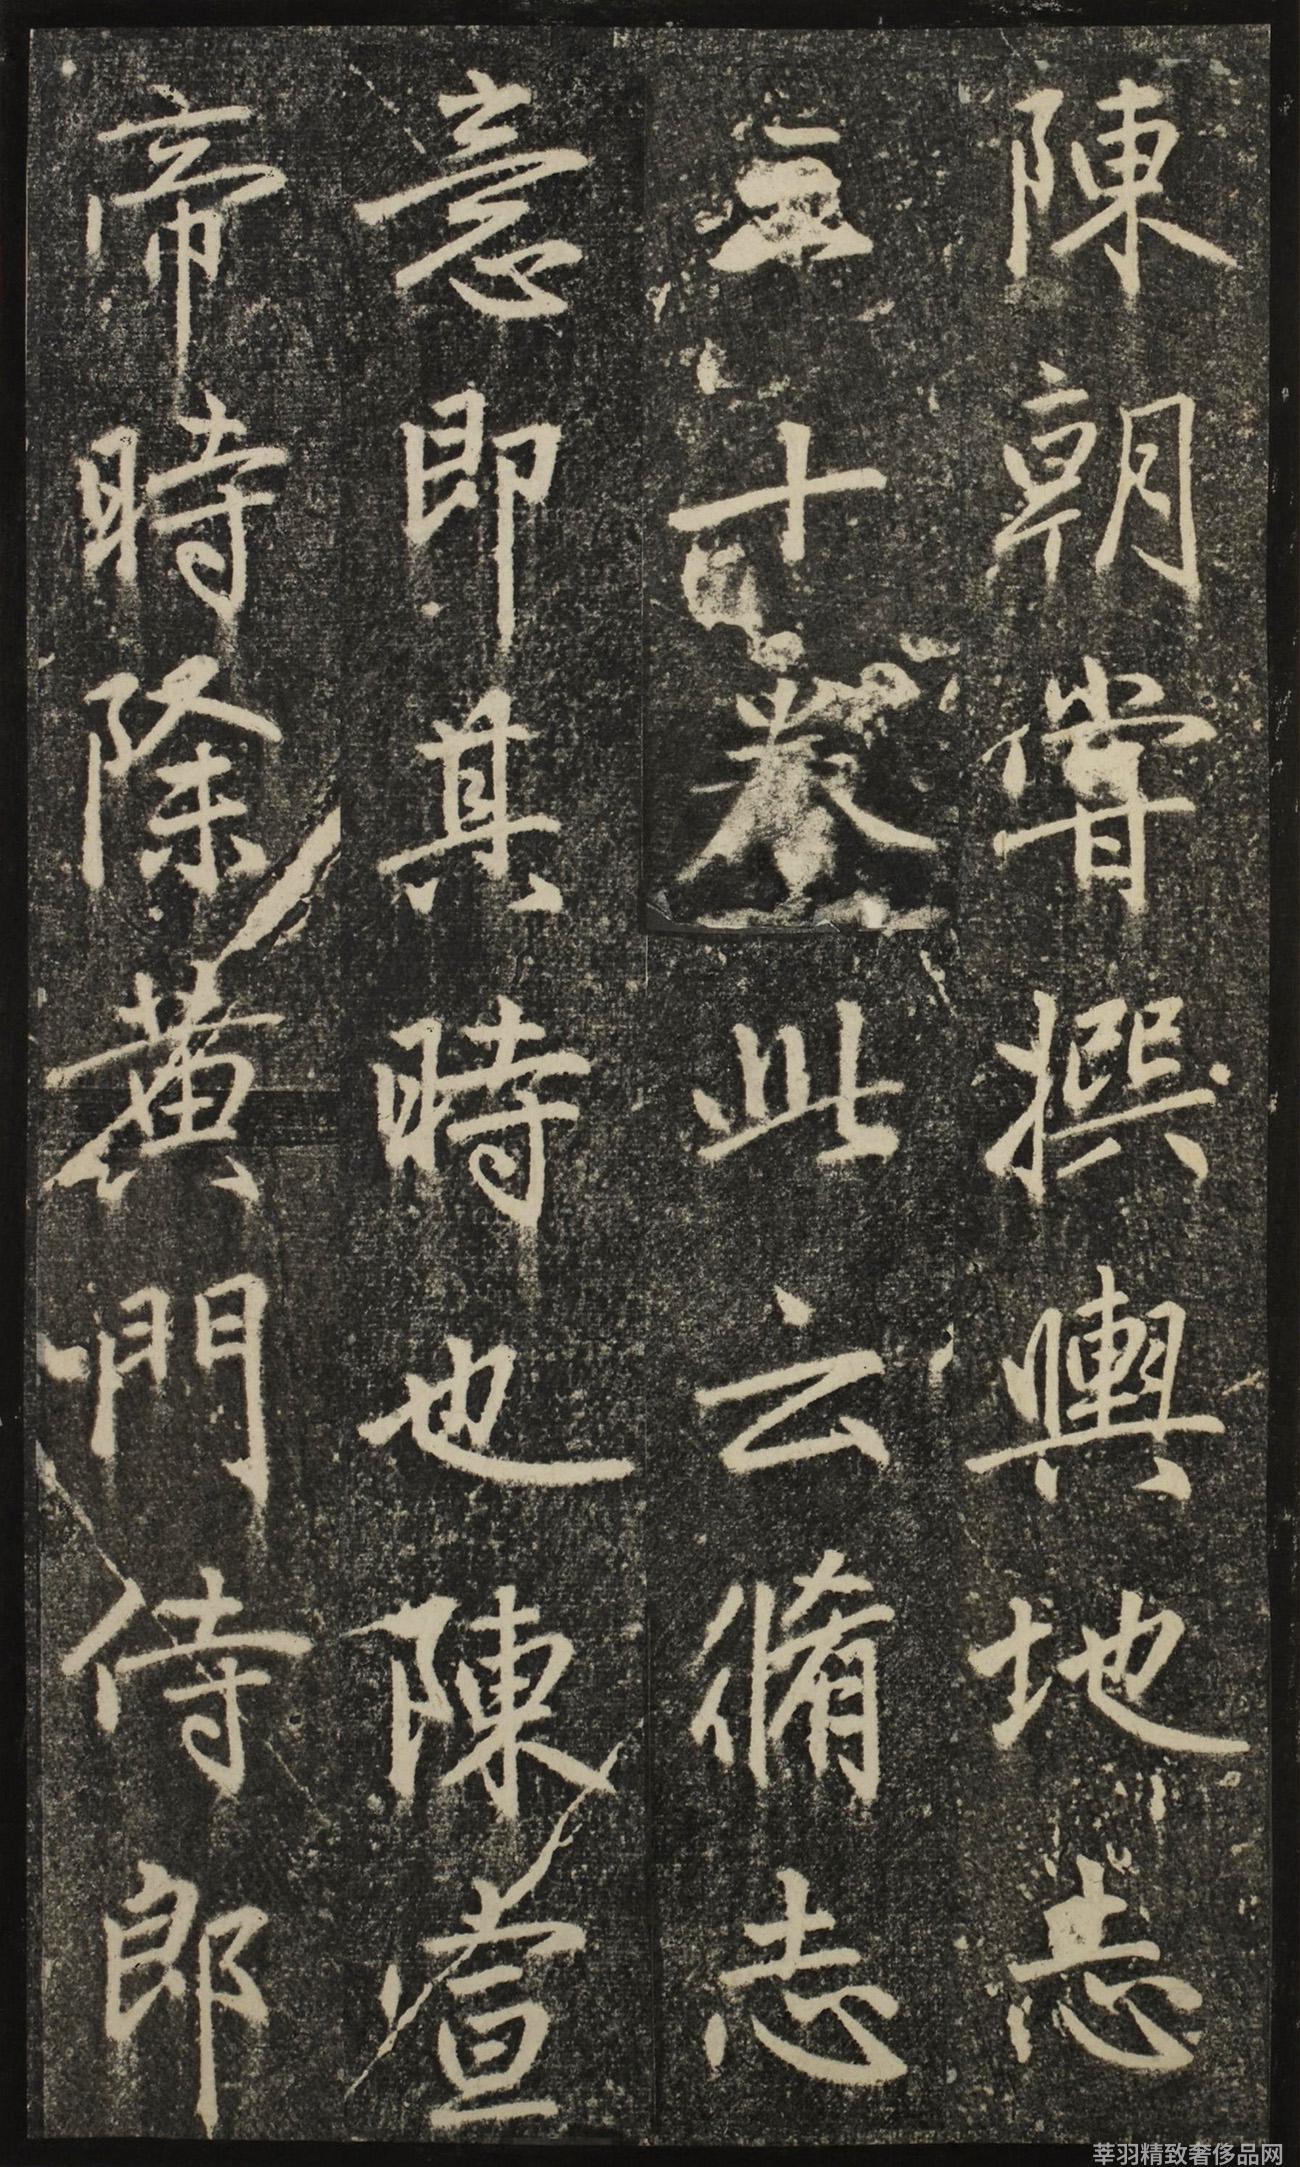 陳朝嘗撰輿地志
三十卷此云脩志
意即其時也陳宣
帝時除黃門侍郎
莘羽精致奢侈品网